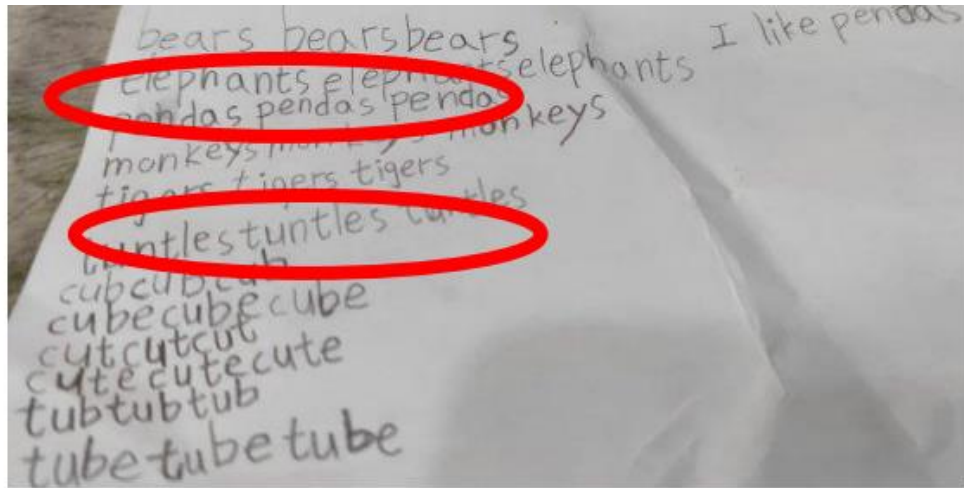 bears bearsbears
I like pendas
elephants elephantselephants
pendas pendas pendas
monkeys monkeys monkeys
tigers tigers tigers
tuntlestuntles tuntles
cubcubcub
cubecubecube
cutcutcut
cutecutecute
tubtubtub
tubetubetube